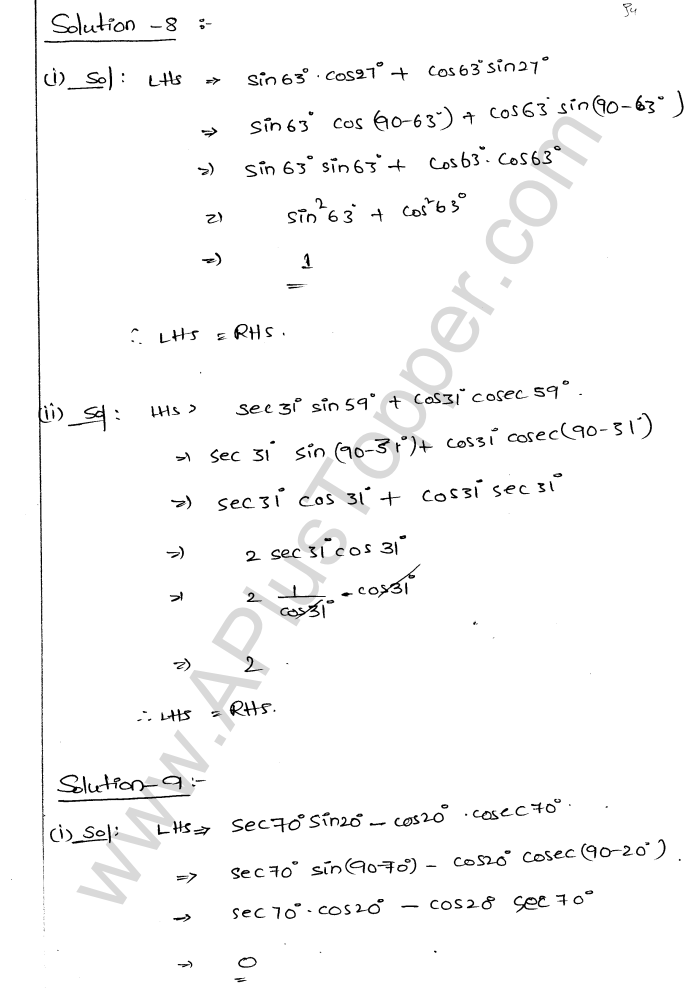 Solution - 8 :-
(i) Sol : LHS ⇒ sin 63° · cos27° + cos63° sin27°
⇒ sin 63° cos (90-63°) + cos63° sin(90-63°)
⇒) sin 63° sin 63° + cos63° · cos63°
=) sin² 63° + cos² 63°
=) 1
∴ LHS = RHS.
(ii) Sol : LHS > sec 31° sin 59° + cos31° cosec 59° .
⇒ sec 31° sin (90-31°) + cos31° cosec(90-31°)
=) sec31° cos 31° + cos31° sec 31°
=) 2 sec31° cos 31°
⇒ 2 1/cos31° · cos31°
=) 2 .
∴ LHS = RHS.
Solution - 9 :-
(i) Sol : LHS ⇒ sec70° sin20° - cos20° · cosec70° .
⇒ sec70° sin(90-70°) - cos20° cosec (90-20°) .
→ sec 70° · cos20° - cos28 sec 70°
→ 0
www.APlusTopper.com